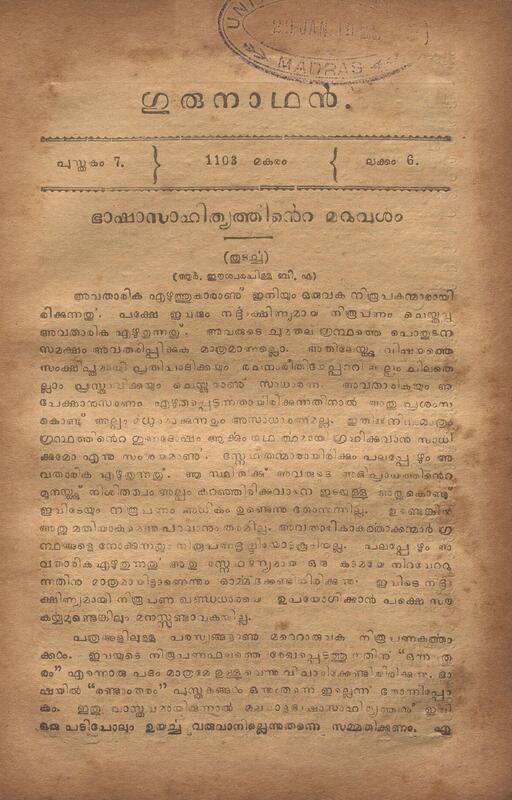 UNI
29 JAN 19
MADRAS
ഗുരുനാഥൻ.
പുസ്തകം 7. 1103 മകരം ലക്കം 6.
ഭാഷാസാഹിത്യത്തിന്റെ മറുവശം
(തുടൎച്ച)
(ആർ. ഈശ്വരപിള്ള ബി. എ)
അവതാരിക എഴുത്തുകാരാണ് ഇനിയും ഒരുവക നിരൂപകന്മാരായി
രിക്കുന്നത്. പക്ഷേ ഇവരും നൎദാക്ഷിണ്യമായ നിരൂപണം ചെയ്തല്ല
അവതാരിക എഴുതുന്നത്. അവരുടെ ചുമതല ഗ്രന്ഥത്തെ പൊതുജന
സമക്ഷം അവതരിപ്പിക്കുക മാത്രമാണല്ലൊ. അതിലേയ്ക്കു വിഷയത്തെ
സംക്ഷിപ്തമായി പ്രതിപാദിക്കയും രചനാരീതിയേപ്പററി അല്പം ചിലതെ
ല്ലാം പ്രസ്താവിക്കയും ചെയ്യുമാണു സാധാരണ. അവതാരികയും അ
പേക്ഷാനുസരണം എഴുതപ്പെടുന്നതായിരിക്കുന്നതിനാൽ അതു പ്രശംസ
കൊണ്ട് അല്പം മധുരമാക്കുന്നതും അസാധാരണമല്ല. ഇതിൽനിന്നുമാത്രം
ഗ്രന്ഥത്തിന്റെ ഗുണദോഷം ആൎക്കും യഥാൎത്ഥമായ ഗ്രഹിക്കുവാൻ സാധി
ക്കുമോ എന്നു സംശയമാണ്. സ്നേഹിതന്മാരായിരിക്കും പലപ്പോഴും അ
വതാരിക എഴുതുന്നത്. ആ സ്ഥിതിക്ക് അവരുടെ അഭിപ്രായത്തിന്റെ
മുനയ്ക്കു് നിശിതത്വം അല്പം കുറഞ്ഞിരിക്കുവാനേ ഇടയുള്ളൂ അതുകൊണ്ട്
ഇവിടേയും നിരൂപണം അധികം ഉണ്ടെന്നു തോന്നുന്നില്ല. ഉണ്ടെങ്കിൽ
അതു മതിയാകുമെന്നു പറവാനും തരമില്ല. അവതാരികാകൎത്താക്കന്മാർ ഗ്ര
ന്ഥങ്ങളെ നോക്കുന്നതും നിരൂപണദൃഷ്ടിയോടുകൂടിയല്ല. പലപ്പോഴും അ
വതാരിക എഴുതുന്നത് അതു സ്നേഹപൂൎണ്ണമായ ഒരു കടമയെ നിറവേററു
ന്നതിനു മാത്രമായിട്ടാണെന്നും ഓൎമ്മിക്കേണ്ടിയിരിക്കുന്നു. ഇവിടെ നിൎദാ
ക്ഷിണ്യമായി നിരൂപണ ഖണ്ഡധാരയെ ഉപയോഗിക്കാൻ പക്ഷെ സൗ
കൎയ്യമുണ്ടെങ്കിലും മനസ്സുണ്ടാവുകയില്ല.
പത്രങ്ങളിലുള്ള പരസ്യങ്ങളാണു മറെറാരുവക നിരൂപണകൎത്താ
ക്കൾ. ഇവയുടെ നിരൂപണഫലത്തെ രേഖപ്പെടുത്തുന്നതിനു് “ഒന്നാന്ത
രം” എന്നൊരു പദം മാത്രമേ ഉള്ളുവെന്നു വിചാരിക്കേണ്ടിയിരിക്കുന്നു. ഭാ
ഷയിൽ “രണ്ടാംതരം” പുസ്തകങ്ങൾ ഒന്നുതന്നെ ഇല്ലെന്ന് തോന്നിപ്പോ
കും. ഇതു വാസ്തവമായിരുന്നാൽ മലയാളഭാഷാസാഹിത്യത്തിനു് ഇനി
ഒരു പടിപോലും ഉയൎച്ച വരുവാനില്ലെന്നുതന്നെ സമ്മതിക്കണം. എ